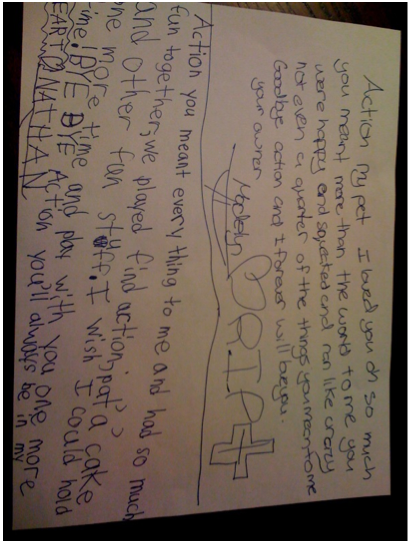 Action my pet I loved you oh so much
you meant more than the world to me you
were happy and and ran like crazy
not even a quarter of the things you mean to me
Goodbye action and I forever will
your owner
Madelyn R.I.P
Action you meant every thing to me and had so much
fun together, we played find action, pat a cake
and other fun stuff. I wish I could hold
one more time and play with you one more
time! BYE BYE Action you'll always be in my
HEART NATHAN